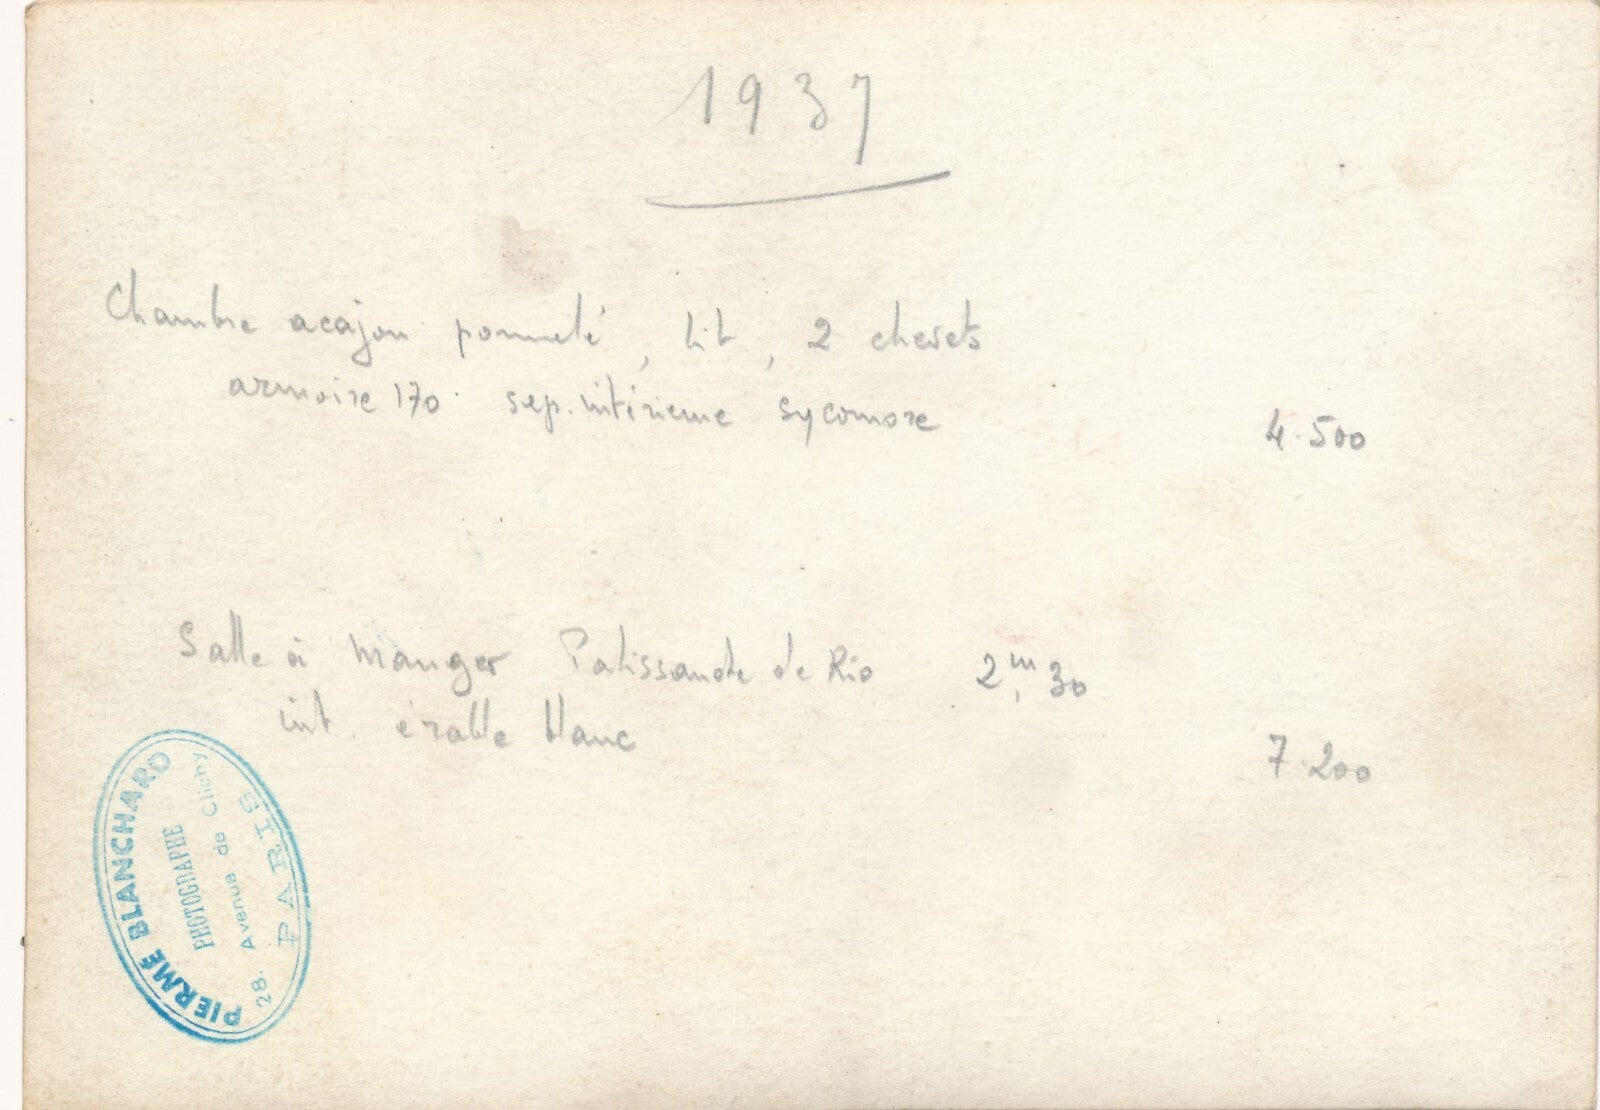 1937
Chambre acajou pommelé, lit, 2 chevets
armoire 170. sep. intérieure sycomore
4.500
Salle à manger Palissandre de Rio 2m,30
int. érable blanc
7.200
PIERMÉ BLANCHARD
PHOTOGRAPHE
28. Avenue de Clichy
PARIS